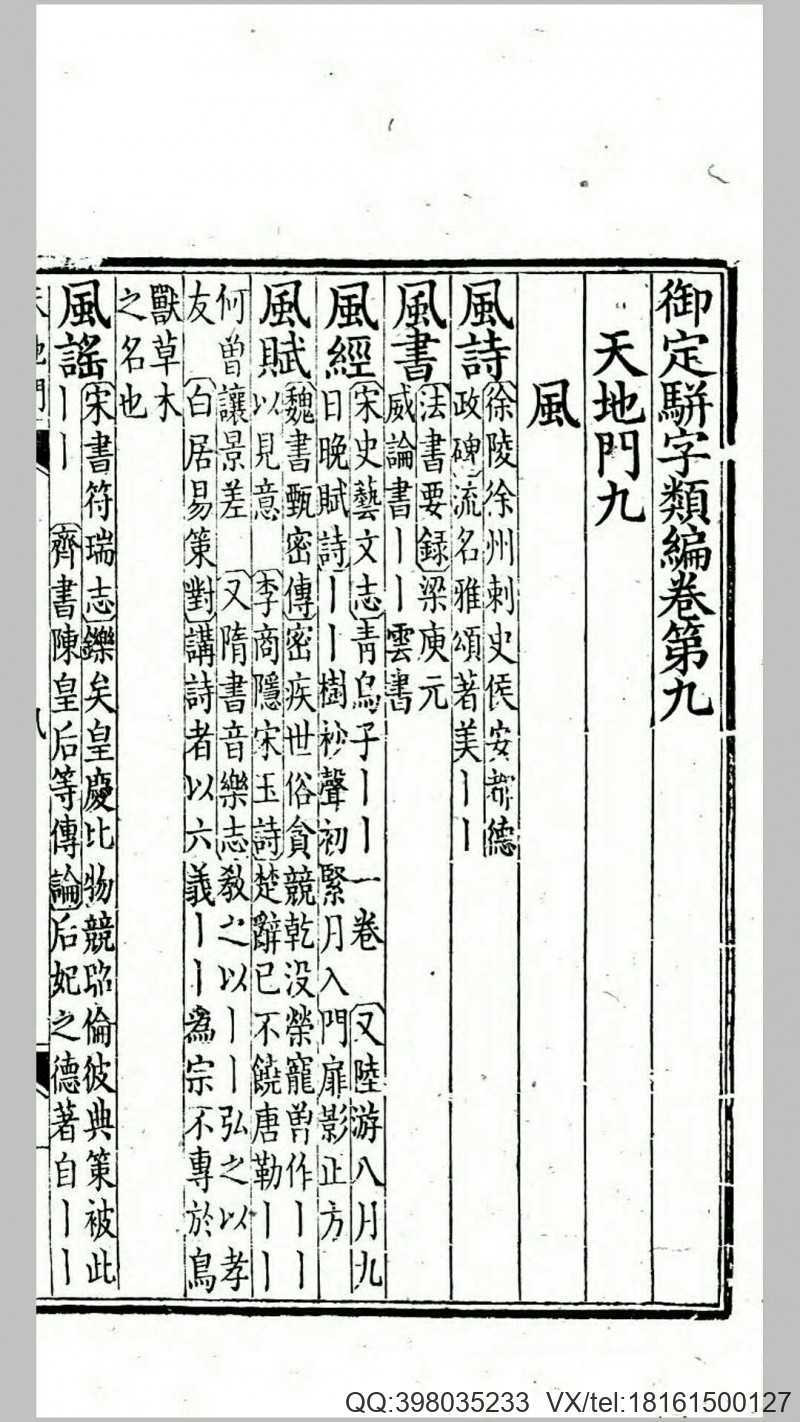 御定駢字類編卷第九
天地門九
風
風詩徐陵徐州刺史侯安都德
政碑流名雅頌著美丨丨
風書法書要録梁庾元
威論書丨丨雲書
風經宋史藝文志青烏子丨丨一卷 又陸游八月九
日晚賦詩丨丨樹杪聲初緊月入門扉影正方
風賦魏書甄密傳密疾世俗貪競乾没榮寵曽作丨丨
以見意 李商隱宋玉詩楚辭已不饒唐勒丨丨
何曽讓景差 又隋書音樂志教之以丨丨弘之以孝
友 白居易策對講詩者以六義丨丨為宗不專於鳥
獸草木
之名也
風謠宋書符瑞志鑠矣皇慶比物競昭倫彼典策被此
丨丨 齊書陳皇后等傳論后妃之德著自丨丨
QQ:398035233 VX/tel:18161500127